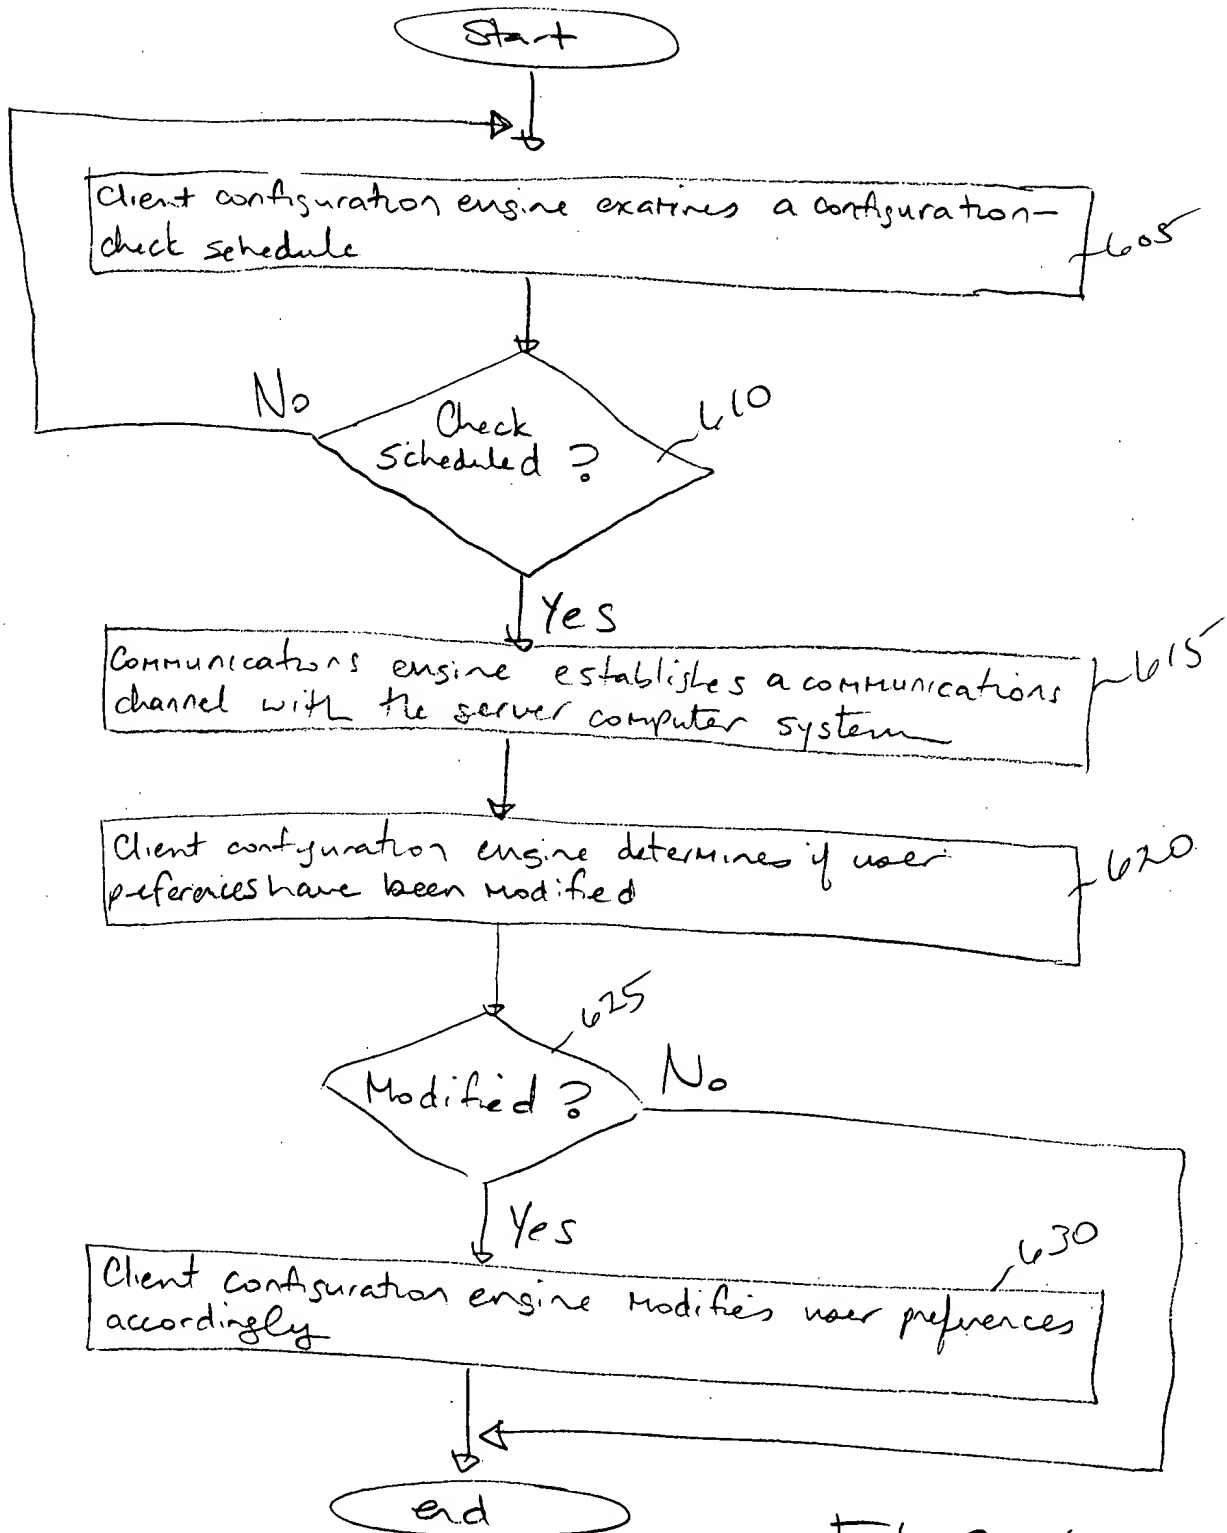 Start
Client configuration engine examines a configuration-
check schedule
605
No
Check
scheduled ?
610
Yes
Communications engine establishes a communications
channel with the server computer system
615
Client configuration engine determines if user
preferences have been modified
620
625
Modified ?
No
Yes
630
Client configuration engine modifies user preferences
accordingly
end